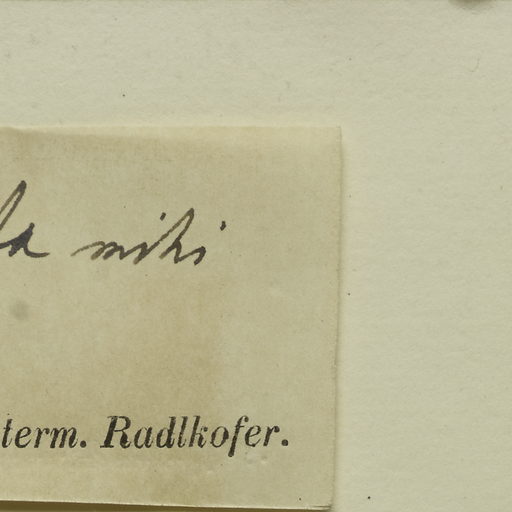 mihi
term. Radlkofer.